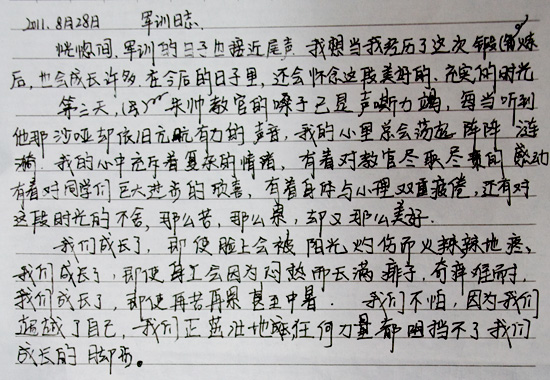 2011.8月28日 军训日志
恍惚间,军训的日子也接近尾声,我想当我经历了这次锻炼
后,也会成长许多.在今后的日子里,还会怀念这段美好的、充实的时光
第三天,朱帅教官的嗓子已是声嘶力竭,每当听到
他那沙哑却依旧充满有力的声音,我的心里总会荡起阵阵涟
漪.我的心中充斥着复杂的情绪,有着对教官尽职尽责的感动
有着对同学们巨大进步的欣喜,有着身体与心理双重疲倦,还有对
这段时光的不舍,那么苦,那么累,却又那么美好.
我们成长了,即使脸上会被阳光灼伤而火辣辣地疼,
我们成长了,即使身上会因为闷热而长满痱子,奇痒难耐,
我们成长了,即使再苦再累甚至中暑.我们不怕,因为我们
超越了自己,我们正茁壮地任何力量都阻挡不了我们
成长的脚步。